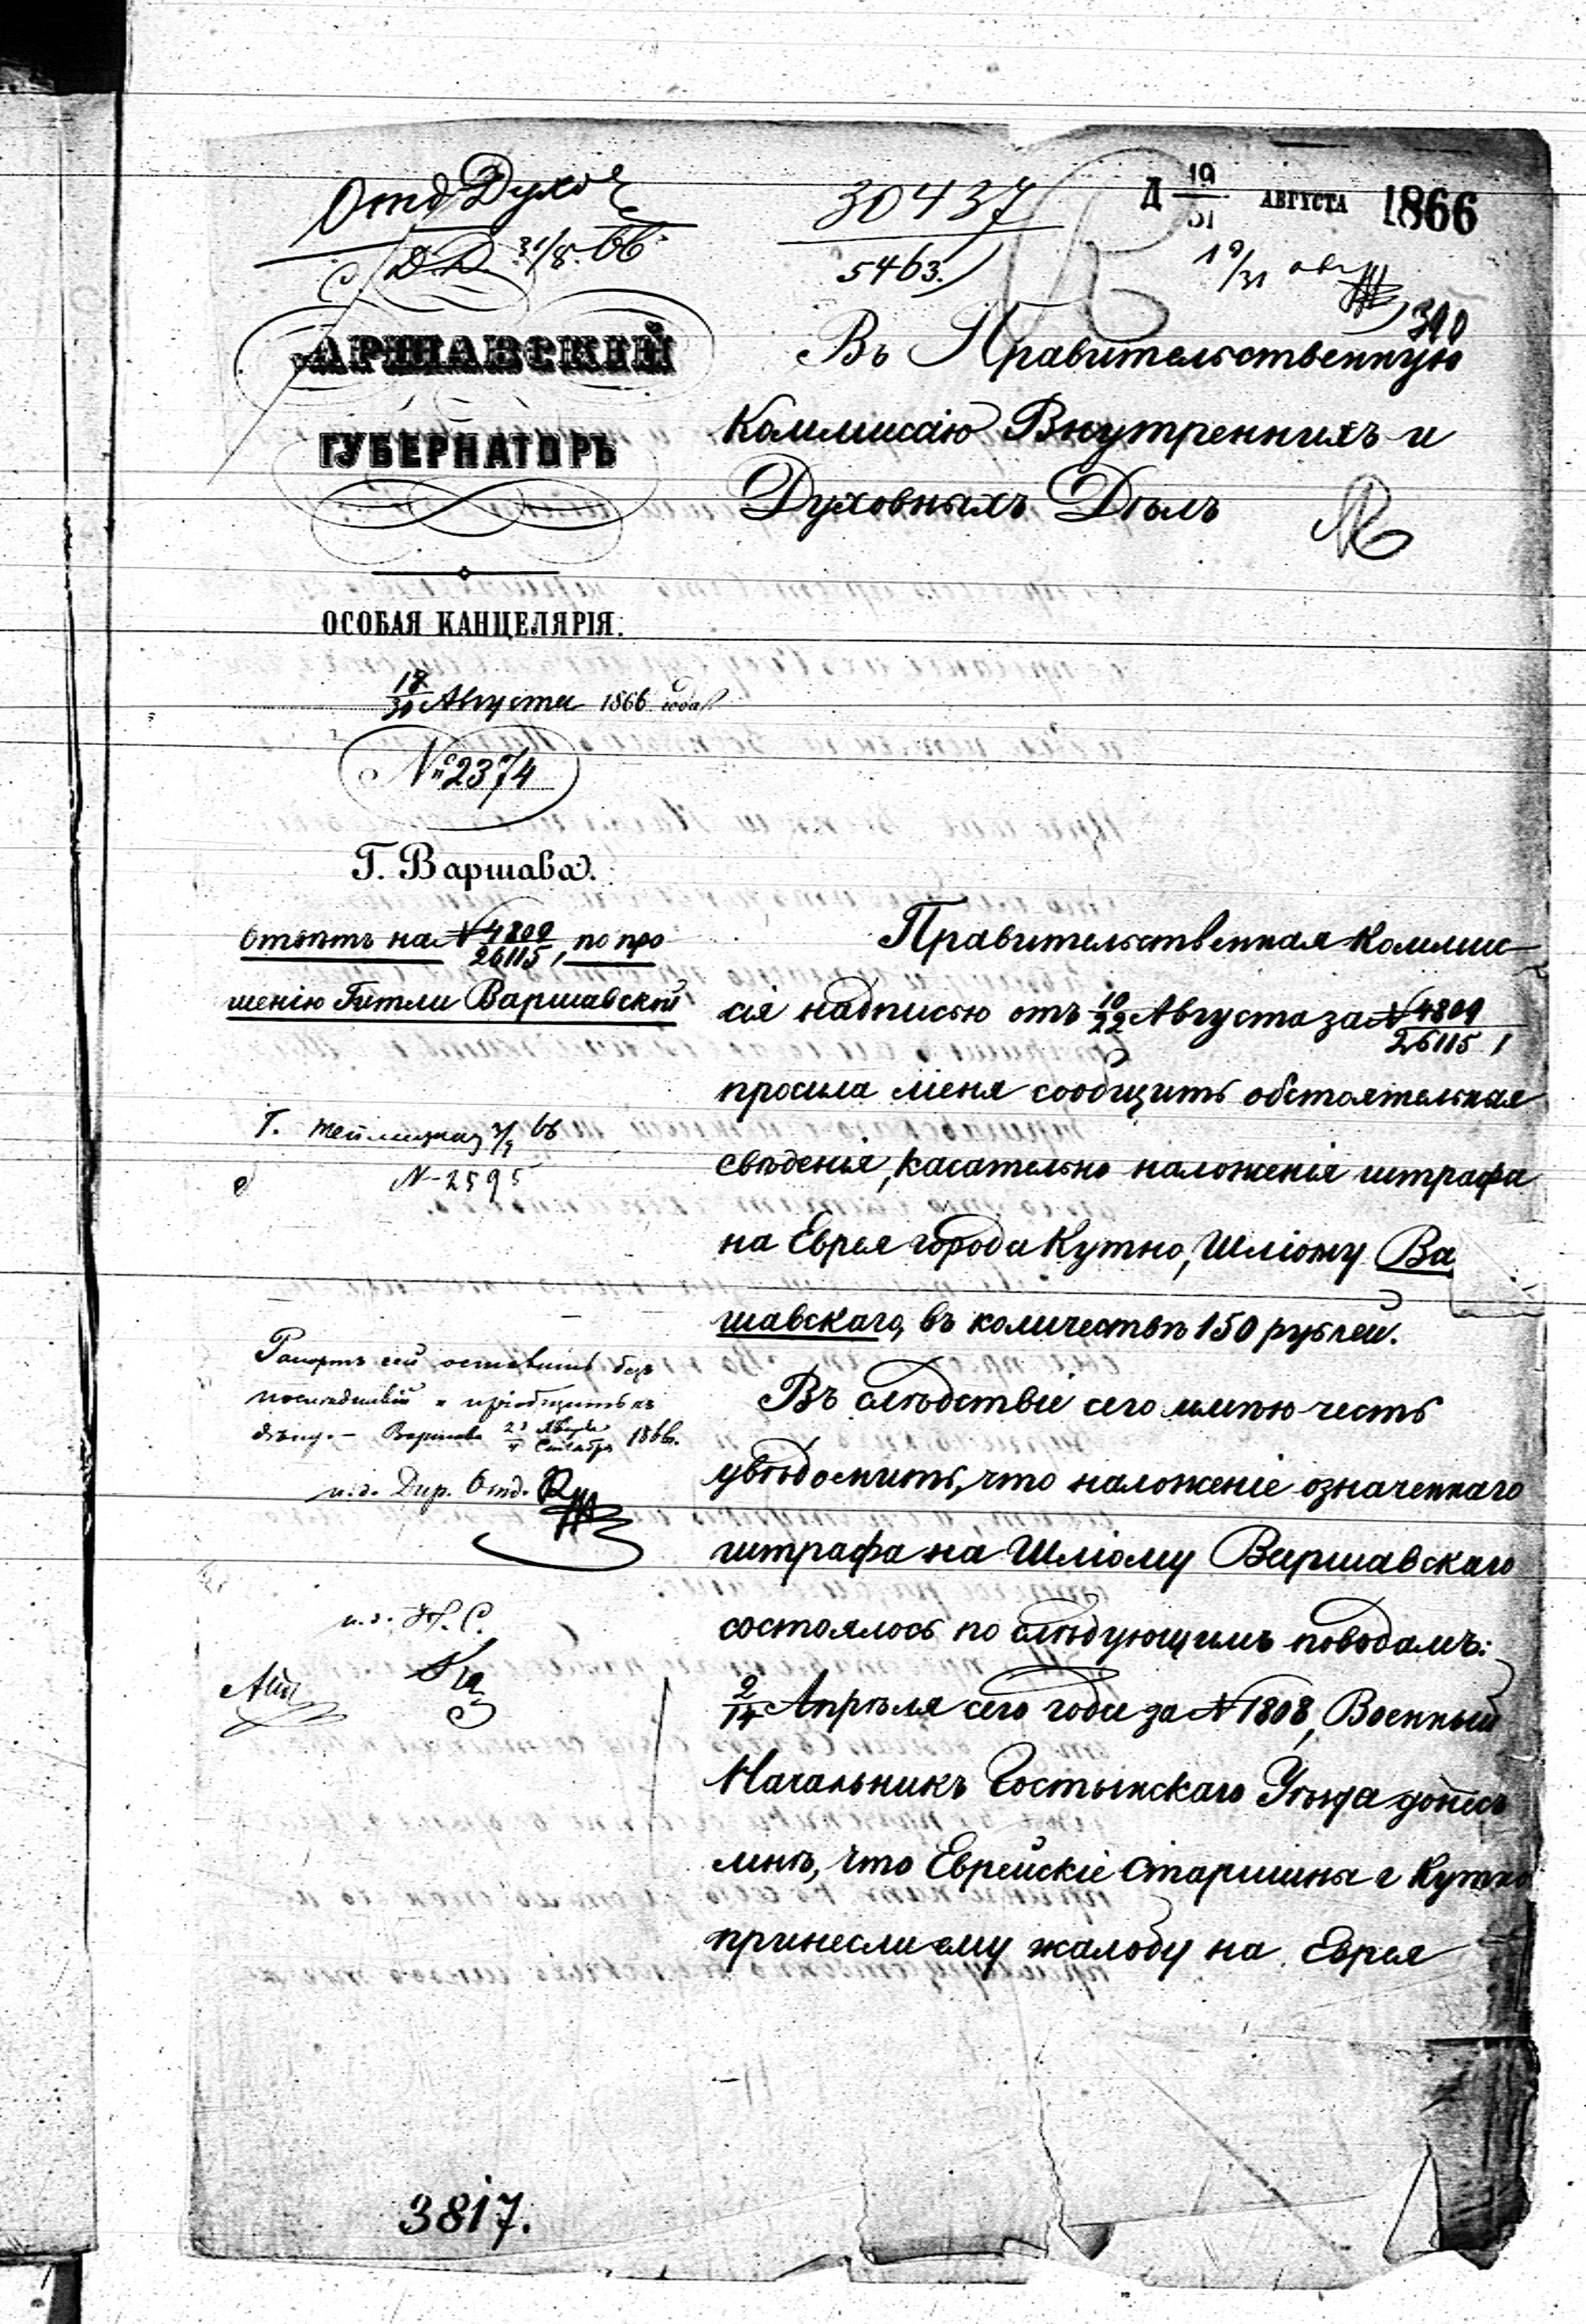 Отд Духов
30437
5463.
Д 19/31 АВГУСТА 1866
31/8 66
19/31 авг
390
ВАРШАВСКІЙ
ГУБЕРНАТОРЪ
ОСОБАЯ КАНЦЕЛЯРІЯ.
18/30 Августа 1866 года
№ 2374
Г. Варшава.
Отвѣтъ на № 4809/26115, по про
шенію Гитли Варшавской
Въ Правительственную
Коммисію Внутреннихъ и
Духовныхъ Дѣлъ
Правительственная Коммис-
сія надписью отъ 10/22 Августа за № 4809/26115,
просила меня сообщить обстоятельная
свѣденія, касательно наложенія штрафа
на Еврея города Кутно, Шліому Ва
шавскаго, въ количествѣ 150 рублей.
Въ слѣдствіе сего имѣю честь
увѣдомить, что наложеніе означеннаго
штрафа на Шліому Варшавскаго
состоялось по слѣдующимъ поводамъ:
2/14 Апрѣля сего года за № 1808, Военный
Начальникъ Гостынскаго Уѣзда донесъ
мнѣ, что Еврейскіе Старшины г Кутно
принесли ему жалобу на Еврея
Т. 66
№ 2595
Рапортъ сей оставить безъ
послѣдствій и пріобщить къ
дѣлу. – Варшава 23 Августа/4 Сентября 1866.
и.д. Дир. Отд.
и.д. Н. С.
3817.